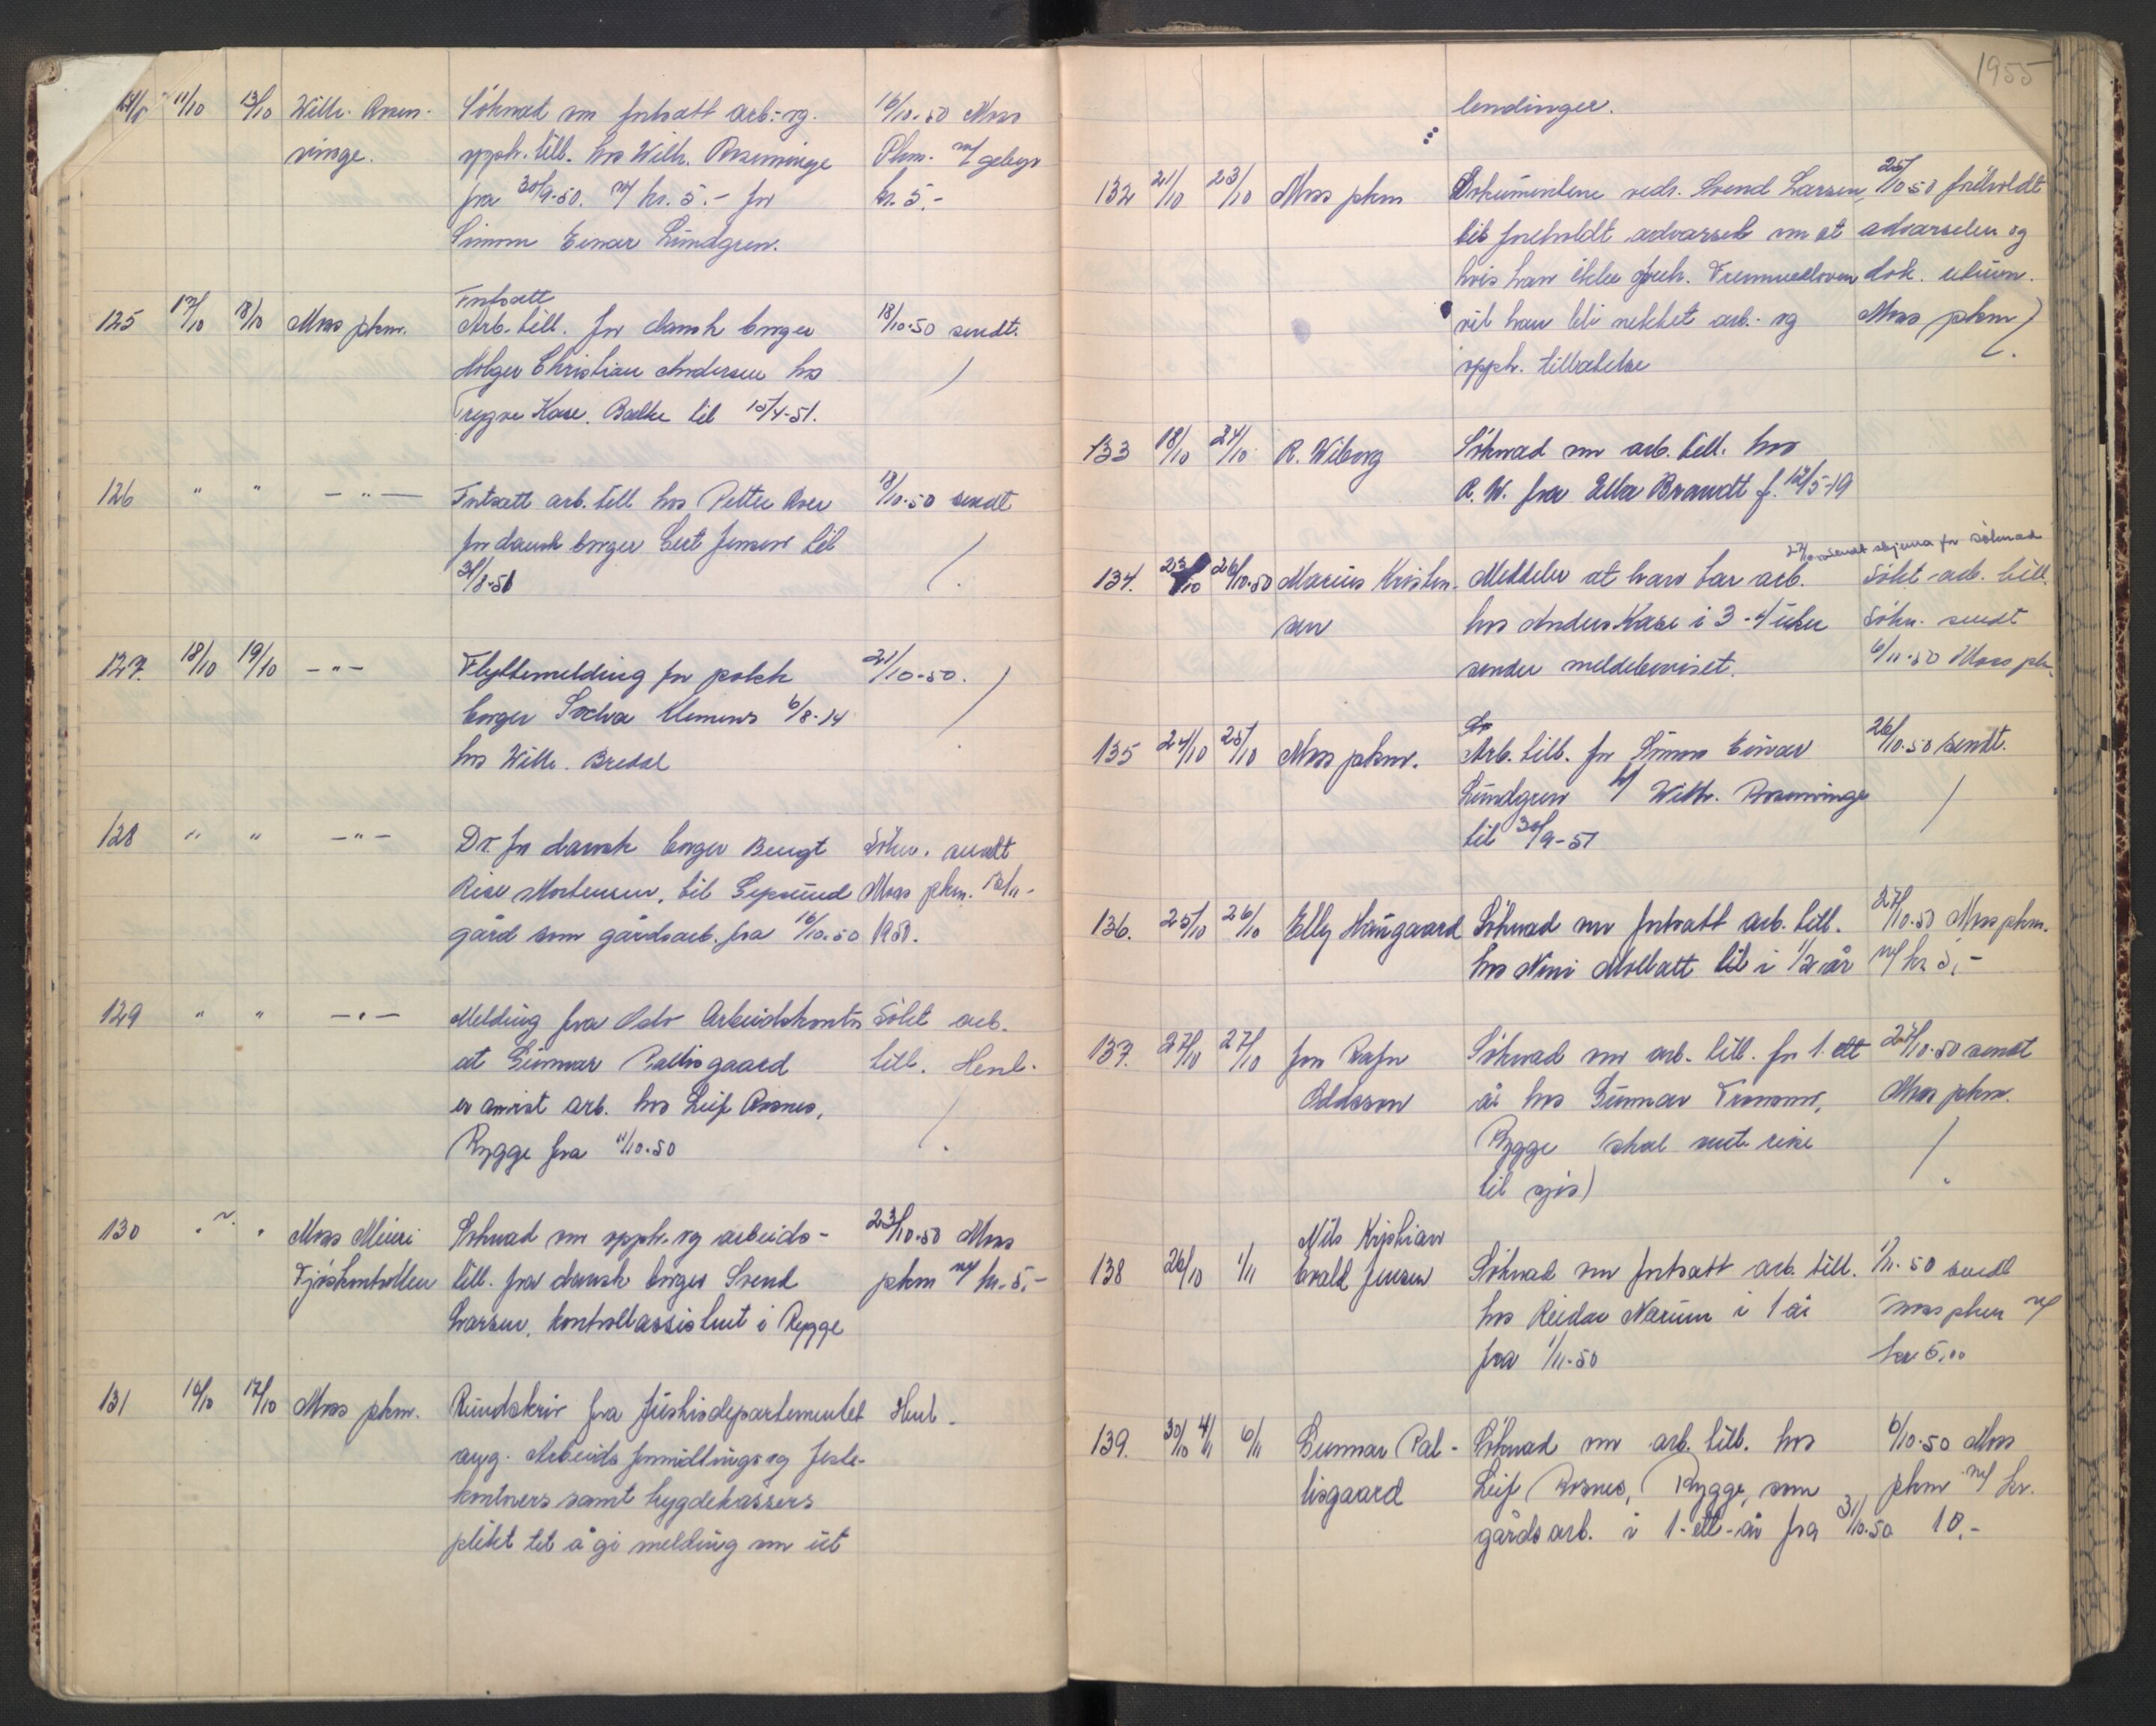 11/10 13/10 Wilh. Rosen- Søknad om fortsatt arb.- og 16/10-50 Moss
vinge. opph. till. hos Wilh. Rosenvinge Pkm. m/ gebyr
fra 30/9-50. m/ kr. 5.- for kr. 5.-
Simon Einar Lundgren.
125 17/10 18/10 Moss pkm. Fortsatt
Arb. till. for dansk borger 18/10-50 sendt.
Holger Christian Andersen hos
Trygve Kase. Bakke til 15/4-51.
126 " " - " - Fortsatt arb. till hos Petter 18/10-50 sendt
for dansk borger Gert Jensen til
127. 18/10 19/10 - " - Flyttemelding for polsk 21/10-50.
borger Klemens 6/8-14
hos Wilh. Bredal
128 " " - " - Do. for dansk borger Bengt Søkn. sendt
Mortensen, til Gipsund Moss pkm.
gård som gårdsarb. fra 16/10.50 1950.
129 " " - " - Melding fra Oslo Arbeidskontor Søkt arb.
at Gunnar Pallisgaard till. Henl.
er anvist arb. hos Leif Rosnes,
Rygge fra 11/10-50
130 " " Moss Meieri Søknad om opph. og arbeids- 23/10-50 Moss
Fjøskontrollen till. for dansk borger Svend pkm m/ kr. 5,-
Larsen, kontrollassistent i Rygge
131 16/10 17/10 Moss pkm. Rundskriv fra Justisdepartementet Henl.
ang. Arbeidsformidlings og feste-
kontorers samt trygdekassers
plikt til å gi melding om ut
1955
lendinger.
132 21/10 23/10 Moss pkm Dokumentene vedr. Svend Larsen, 25/10 50 foreholdt
bli foreholdt advarsel om at advarselen og
hvis han ikke Fremmedloven dok. return.
vil han bli nektet arb.- og Moss pkm
opph. tillatelse
133 18/10 24/10 R. Wiborg Søknad om arb. till. hos
R. W. fra Ella Brandt f. 12/5-19
27/10 sendt skjema for søknad
134. 23/10 26/10-50 Marius Kristen- Meddeler at han har arb. Søkt arb. till.
sen hos Anders Kase i 3-4 uker Søkn. sendt
sender meldebeviset. 6/11-50 Moss pk.
135 24/10 25/10 Moss pkm. Arb. till. for Simon Einar 26/10-50 sendt.
Lundgren h/ Wilh. Rosenvinge
til 30/9-51
136. 25/10 26/10 Elly Haugaard Søknad om fortsatt arb. till. 27/10-50 Moss pkm.
hos Nini Mollatt til i 1/2 år m/ kr 5,-
137. 27/10 27/10 Jon Rafn Søknad om arb. till. for 1 ett 27/10-50 sendt
Oddsson år hos Gunnar Tronsmo, Moss pkm.
Rygge (skal reise
til sjøs)
Nils Kristian
138 26/10 1/11 Evald Jensen Søknad om fortsatt arb. till. 1/11-50 sendt
hos Reidar Narum i 1 år moss pkm m/
fra 1/11-50 kr 5,00
139. 30/10 4/11 6/11 Gunnar Pal- Søknad om arb. till. hos 6/10-50 Moss
lisgaard Leif Rosnes, Rygge, som pkm m/ kr.
gårdsarb. i 1-ett-år fra 31/10-50 10,-